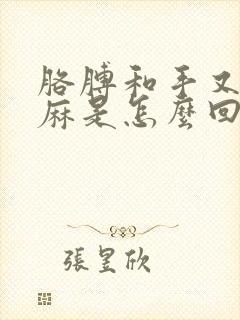 胳膊和手又
麻是怎麼回
張昱欣